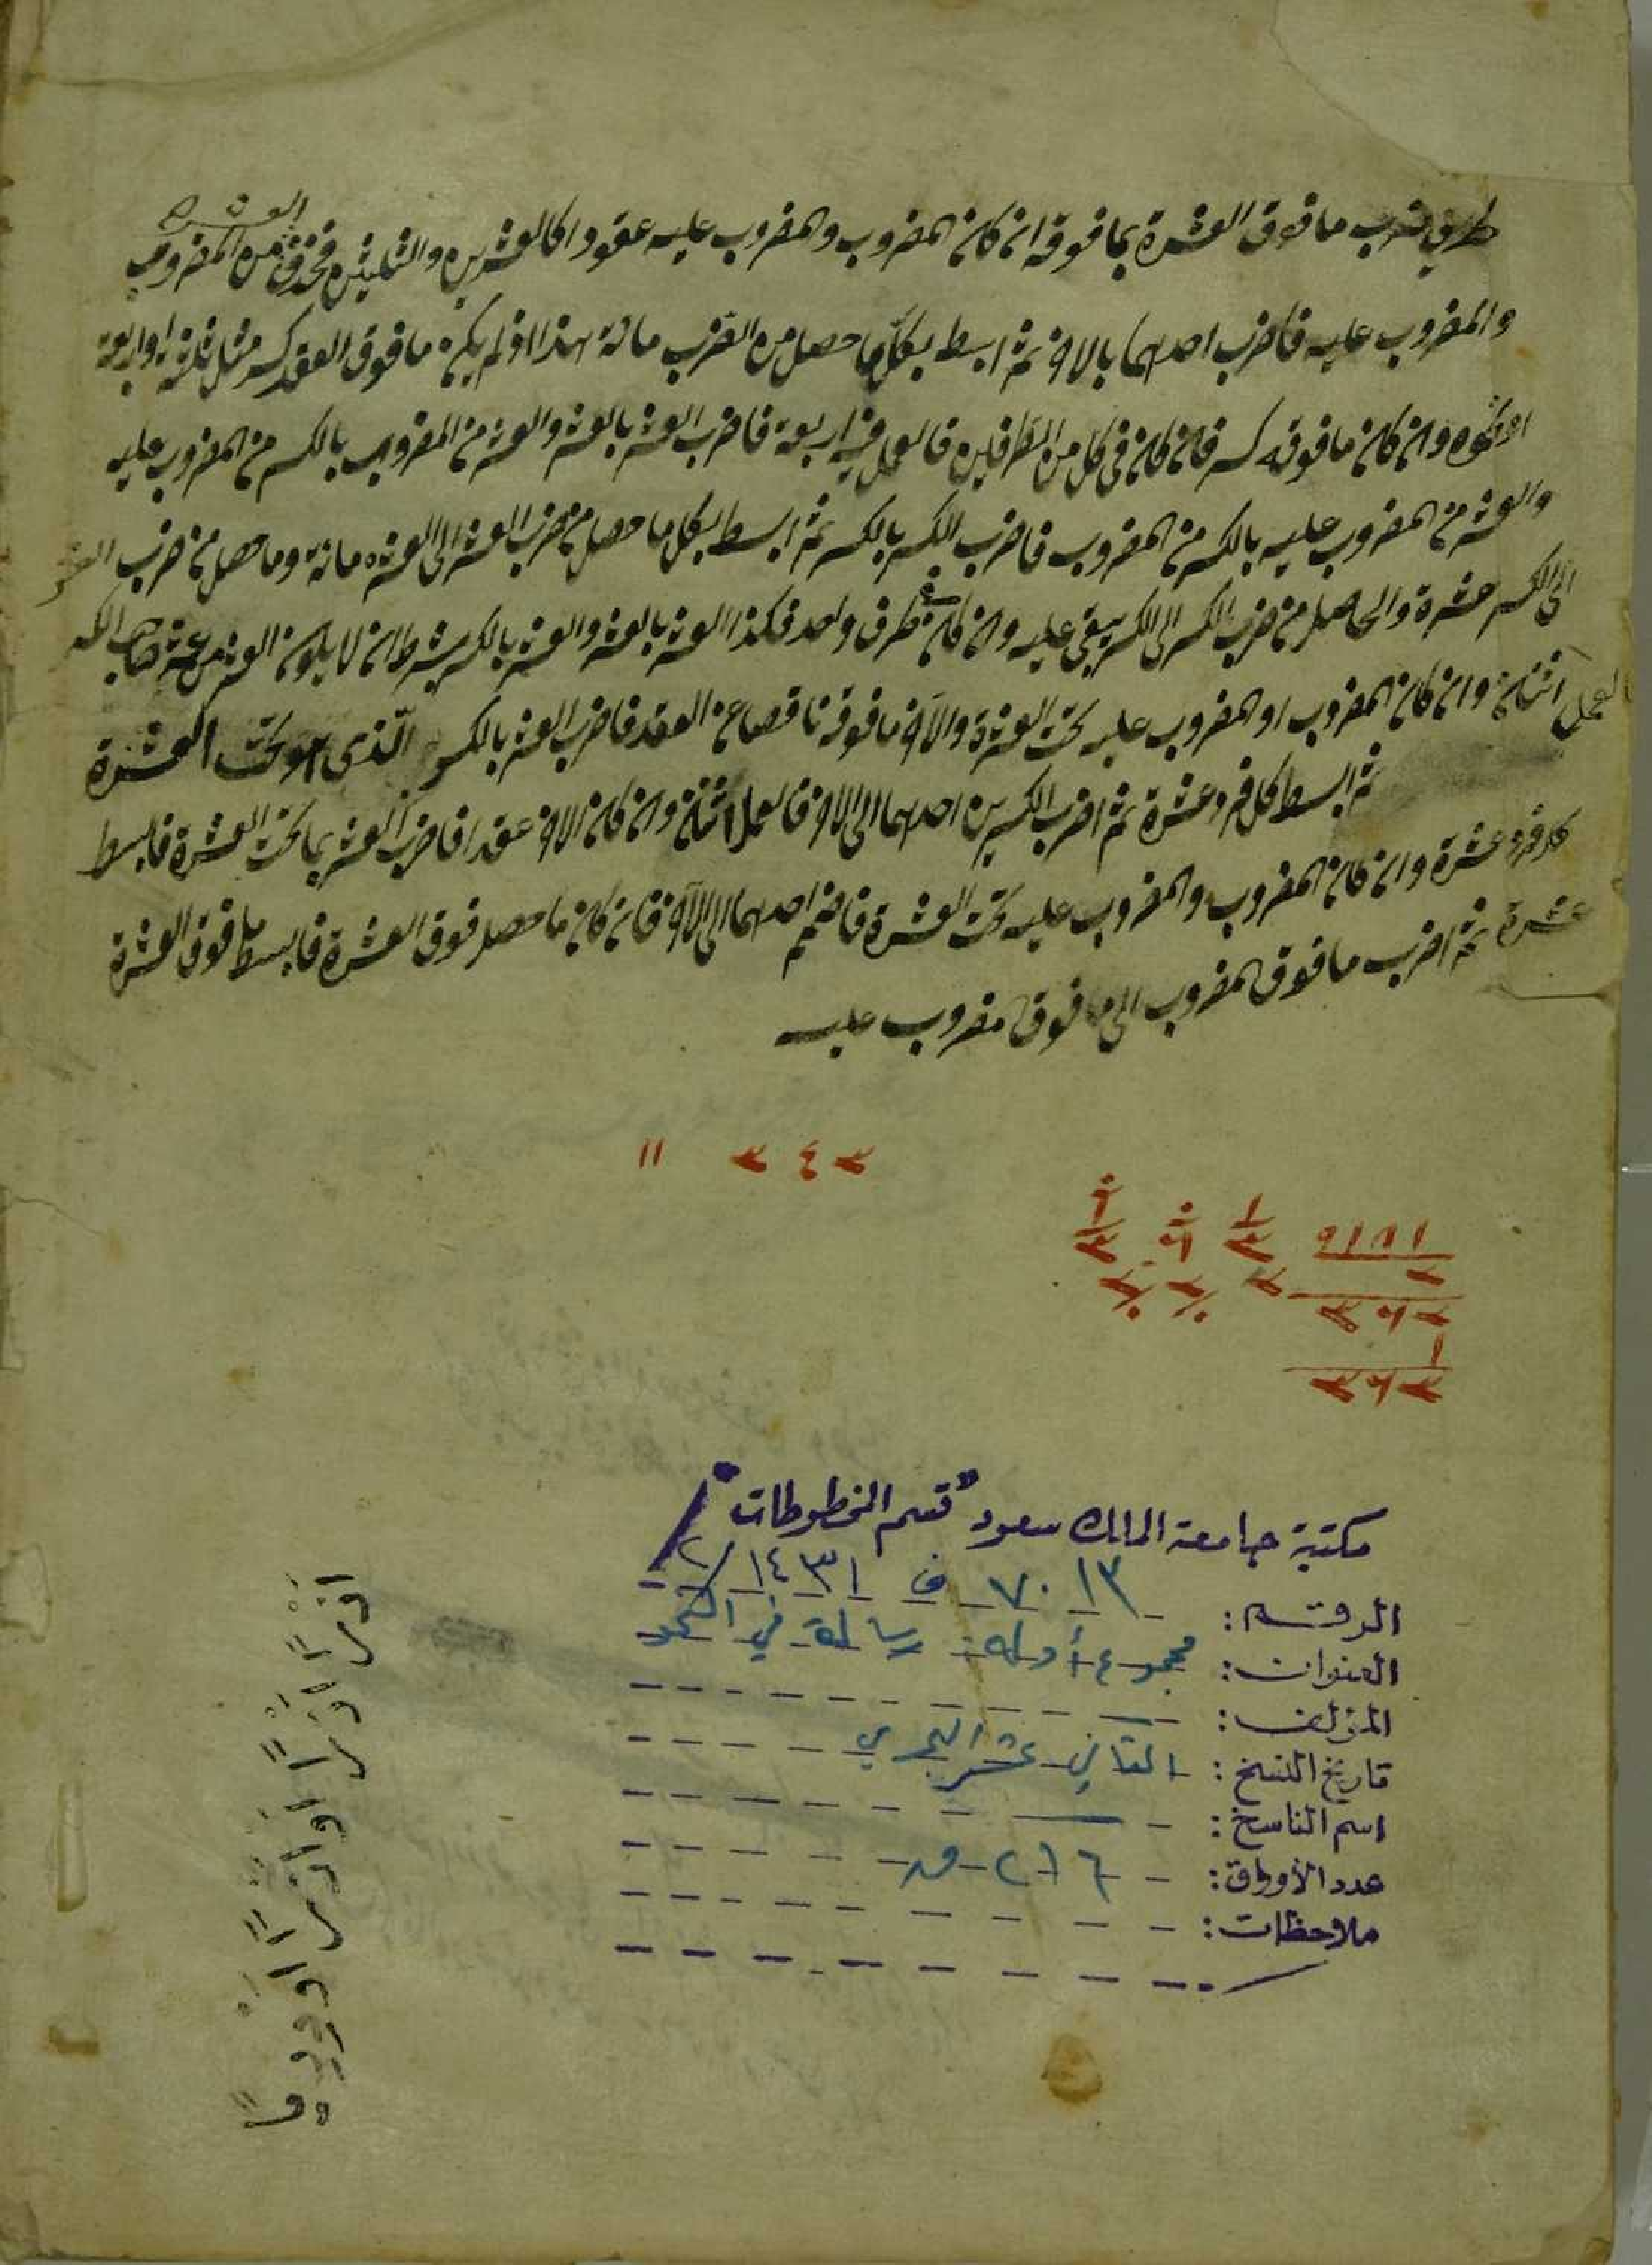 طريق ضرب ما فوق العشرة بما فوقه ان كان المضروب والمضروب عليه عقودا كالعشرين والثلثين فخذ من المضروب
العشرة
والمضروب عليه فاضرب احدهما بالاخر ثم ابسط بكل ما حصل من الضرب مائة هذا اذا لم يكن ما فوق العقد كسر مثل ثلثة او اربعة
او نحوه وان كان ما فوقه كسر فان كان في كل من الطرفين فالعمل فيه اربعة فاضرب العشر بالعشر والعشر من المضروب بالكسر من المضروب عليه
والعشر من المضروب عليه بالكسر من المضروب فاضرب الكسر بالكسر ثم ابسط بكل ما حصل من ضرب العشر الى العشره مائة وما حصل من ضرب العشر
الى الكسر عشرة والحاصل من ضرب الكسر الى الكسر يبقى عليه وان كان في طرف واحد فكذا العشر بالعشر والعشر بالكسر بشرط ان لا يكون العشر من
العمل اثنان وان كان المضروب او المضروب عليه تحت العشرة والآخر ما فوقه ناقصا عن العقد فاضرب العشر بالكسر الذى هو تحت العشرة
ثم ابسط كل فرد عشرة ثم اضرب الكسرين احدهما الى الاخر فالعمل اثنان وان كان الاخر عقدا فاضرب العشر بما تحت العشرة فابسط
كل فرد عشرة وان كان المضروب والمضروب عليه تحت العشرة فاضمم احدهما الى الآخر فان كان ما حصل فوق العشرة فابسط ما فوق العشرة
عشرة ثم اضرب ما فوق المضروب الى ما فوق مضروب عليه
٣ ٤ ٣ ١١
مكتبة جامعة الملك سعود "قسم المخطوطات"
الرقم: ٧٠١٣ ف ١٤٣١/٢
العنوان: مجموع أوله: رسالة في النحو
المؤلف:
تاريخ النسخ: الثاني عشر الهجري
اسم الناسخ:
عدد الأوراق: ٢١٦ ق
ملاحظات: